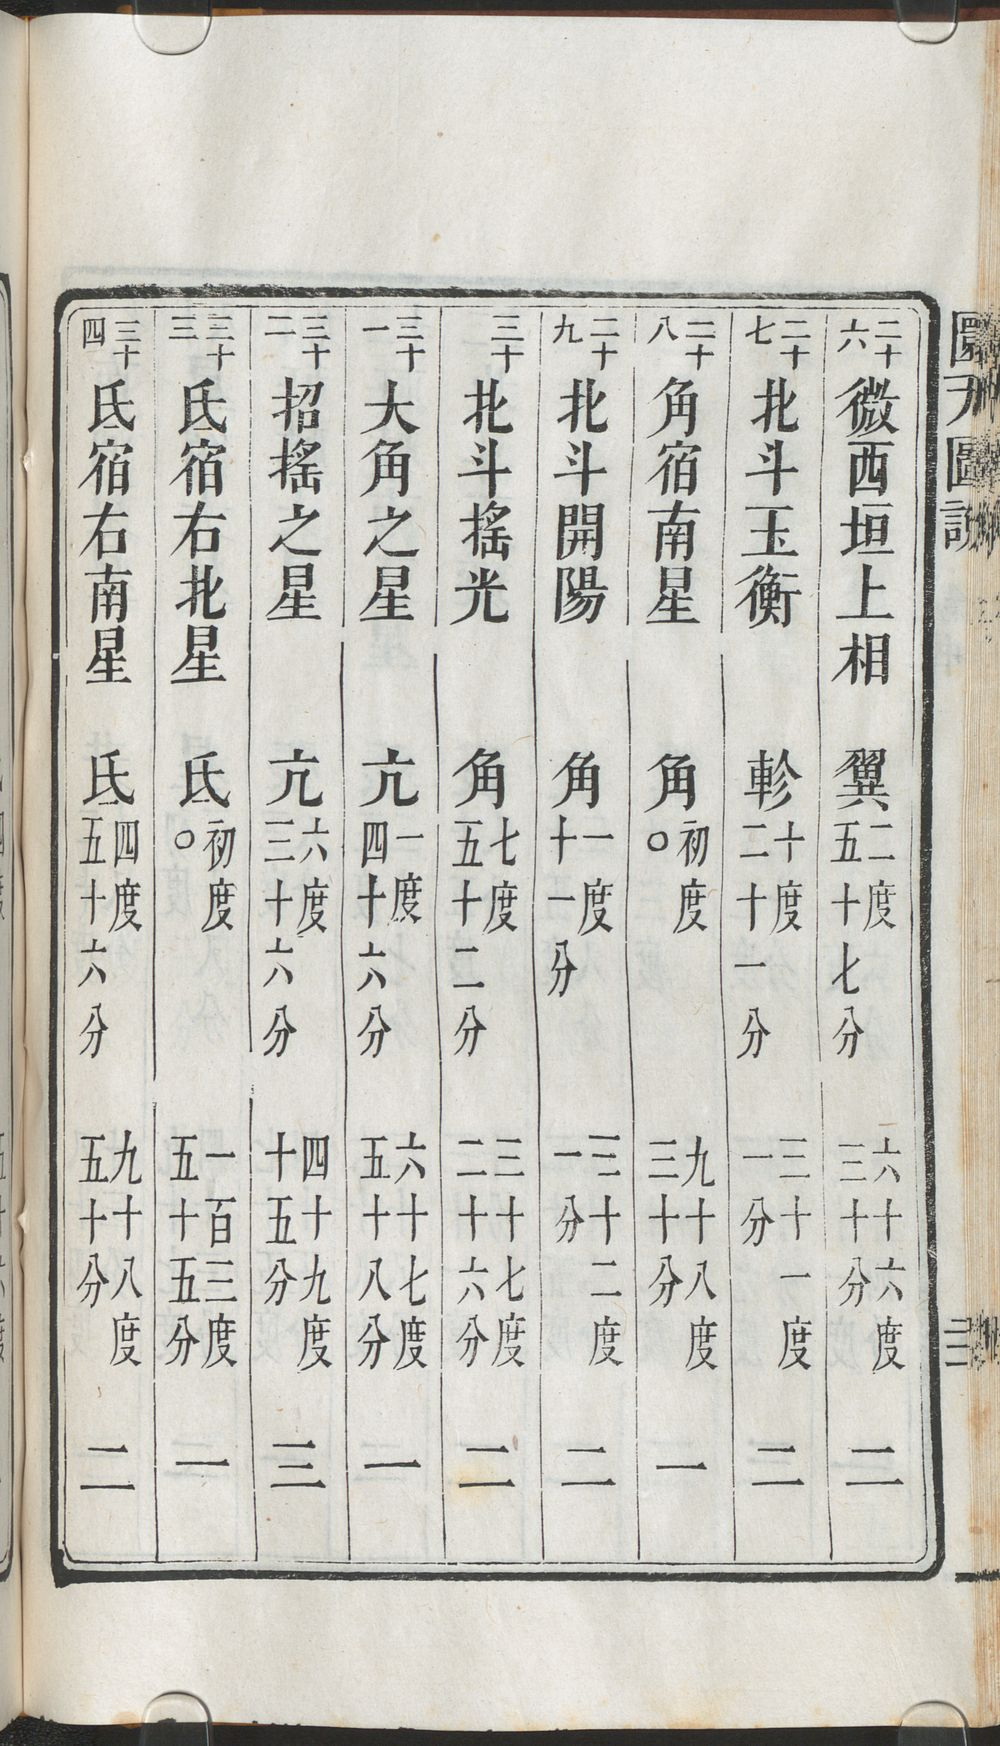 二十六 微西垣上相 翼二度五十七分 六十六度三十分 二
二十七 北斗玉衡 軫十度二十一分 三十一度一分 二
二十八 角宿南星 角初度〇 九十八度三十分 一
二十九 北斗開陽 角一度十一分 三十二度一分 二
三十 北斗搖光 角七度五十二分 三十七度二十六分 二
三十一 大角之星 亢一度四十六分 六十七度五十八分 一
三十二 招搖之星 亢六度三十六分 四十九度十五分 三
三十三 氐宿右北星 氐初度〇 一百三度五十五分 一
三十四 氐宿右南星 氐四度五十六分 九十八度五十分 二